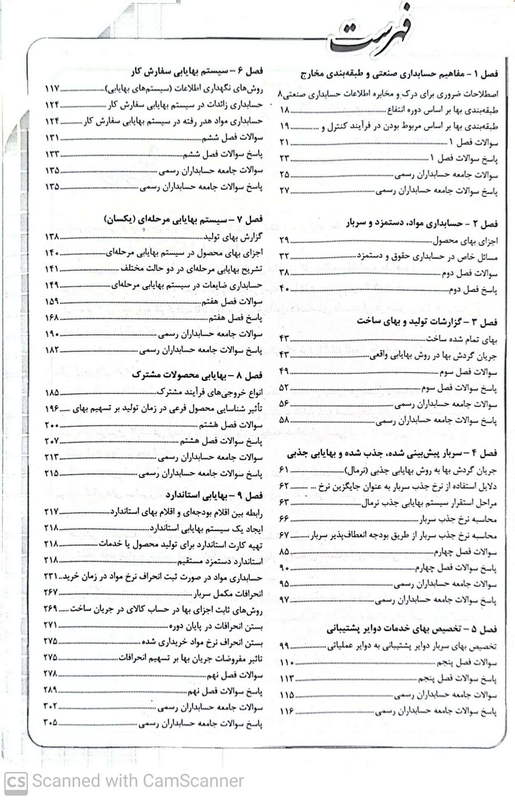 فهرست
فصل ۱ - مفاهیم حسابداری صنعتی و طبقه‌بندی مخارج
اصطلاحات ضروری برای درک و مخابره اطلاعات حسابداری صنعتی ۸
طبقه‌بندی بها بر اساس دوره انتفاع ۱۸
طبقه‌بندی بها بر اساس مربوط بودن در فرآیند کنترل و ... ۱۹
سوالات فصل ۱ ۲۱
پاسخ سوالات فصل ۱ ۲۳
سوالات جامعه حسابداران رسمی ۲۵
پاسخ سوالات جامعه حسابداران رسمی ۲۷
فصل ۲ - حسابداری مواد، دستمزد و سربار
اجزای بهای محصول ۲۹
مسائل خاص در حسابداری حقوق و دستمزد ۳۲
سوالات فصل دوم ۳۸
پاسخ فصل دوم ۴۰
فصل ۳ - گزارشات تولید و بهای ساخت
بهای تمام شده ساخت ۴۳
جریان گردش بها در روش بهایابی واقعی ۴۳
سوالات فصل سوم ۴۹
پاسخ سوالات فصل سوم ۵۲
سوالات جامعه حسابداران رسمی ۵۶
پاسخ سوالات جامعه حسابداران رسمی ۵۸
فصل ۴ - سربار پیش‌بینی شده، جذب شده و بهایابی جذبی
جریان گردش بها به روش بهایابی جذبی (نرمال) ۶۱
دلایل استفاده از نرخ جذب سربار به عنوان جایگزین نرخ ... ۶۲
مراحل استقرار سیستم بهایابی جذب نرمال ۶۳
محاسبه نرخ جذب سربار ۶۶
محاسبه نرخ جذب سربار از طریق بودجه انعطاف‌پذیر سربار ۶۷
سوالات فصل چهارم ۸۵
پاسخ سوالات فصل چهارم ۹۰
سوالات جامعه حسابداران رسمی ۹۵
پاسخ سوالات جامعه حسابداران رسمی ۹۷
فصل ۵ - تخصیص بهای خدمات دوایر پشتیبانی
تخصیص بهای سربار دوایر پشتیبانی به دوایر عملیاتی ۹۹
سوالات فصل پنجم ۱۱۰
پاسخ سوالات فصل پنجم ۱۱۳
سوالات جامعه حسابداران رسمی ۱۱۵
پاسخ سوالات جامعه حسابداران رسمی ۱۱۶
فصل ۶ - سیستم بهایابی سفارش کار
روش‌های نگهداری اطلاعات (سیستم‌های بهایابی) ۱۱۷
حسابداری زائدات در سیستم بهایابی سفارش کار ۱۲۴
حسابداری مواد هدر رفته در سیستم بهایابی سفارش کار ۱۲۴
سوالات فصل ششم ۱۳۱
پاسخ سوالات فصل ششم ۱۳۳
سوالات جامعه حسابداران رسمی ۱۳۵
پاسخ سوالات جامعه حسابداران رسمی ۱۳۵
فصل ۷ - سیستم بهایابی مرحله‌ای (یکسان)
گزارش بهای تولید ۱۳۸
اجزای بهای محصول در سیستم بهایابی مرحله‌ای ۱۴۰
تشریح بهایابی مرحله‌ای در دو حالت مختلف ۱۴۱
حسابداری ضایعات در سیستم بهایابی مرحله‌ای ۱۴۹
سوالات فصل هفتم ۱۵۹
پاسخ سوالات فصل هفتم ۱۶۸
سوالات جامعه حسابداران رسمی ۱۹۰
پاسخ سوالات جامعه حسابداران رسمی ۱۸۲
فصل ۸ - بهایابی محصولات مشترک
انواع خروجی‌های فرآیند مشترک ۱۸۵
تأثیر شناسایی محصول فرعی در زمان تولید بر تسهیم بهای ۱۹۶
سوالات فصل هشتم ۲۰۰
پاسخ سوالات فصل هشتم ۲۰۷
سوالات جامعه حسابداران رسمی ۲۱۳
پاسخ سوالات جامعه حسابداران رسمی ۲۱۵
فصل ۹ - بهایابی استاندارد
رابطه بین اقلام بودجه‌ای و اقلام بهای استاندارد ۲۱۷
ایجاد یک سیستم بهایابی استاندارد ۲۱۸
تهیه کارت استاندارد برای تولید محصول یا خدمات ۲۱۸
استاندارد دستمزد مستقیم ۲۱۸
حسابداری مواد در صورت ثبت انحراف نرخ مواد در زمان خرید ۲۳۱
انحرافات مکمل سربار ۲۶۷
روش‌های ثابت اجزای بها در حساب کالای در جریان ساخت ۲۶۹
بستن انحرافات در پایان دوره ۲۷۱
بستن انحراف نرخ مواد خریداری شده ۲۷۵
تاثیر مفروضات جریان بها بر تسهیم انحرافات ۲۷۵
سوالات فصل نهم ۲۷۸
پاسخ سوالات فصل نهم ۲۸۹
سوالات جامعه حسابداران رسمی ۳۰۲
پاسخ سوالات جامعه حسابداران رسمی ۳۰۵
CS Scanned with CamScanner